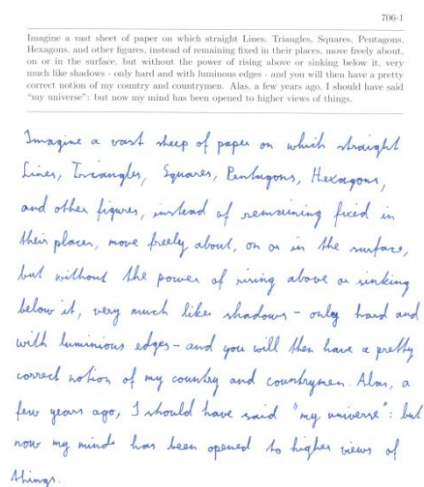 706-1
Imagine a vast sheet of paper on which straight Lines, Triangles, Squares, Pentagons,
Hexagons, and other figures, instead of remaining fixed in their places, move freely about,
on or in the surface, but without the power of rising above or sinking below it, very
much like shadows - only hard and with luminous edges - and you will then have a pretty
correct notion of my country and countrymen. Alas, a few years ago, I should have said
"my universe": but now my mind has been opened to higher views of things.
Imagine a vast sheep of paper on which straight
Lines, Triangles, Squares, Pentagons, Hexagons,
and other figures, instead of remaining fixed in
their places, move freely about, on or in the surface,
but without the power of rising above or sinking
below it, very much like shadows - only hard and
with luminious edges - and you will then have a pretty
correct notion of my country and countrymen. Alas, a
few years ago, I should have said "my universe": but
now my mind has been opened to higher views of
things.